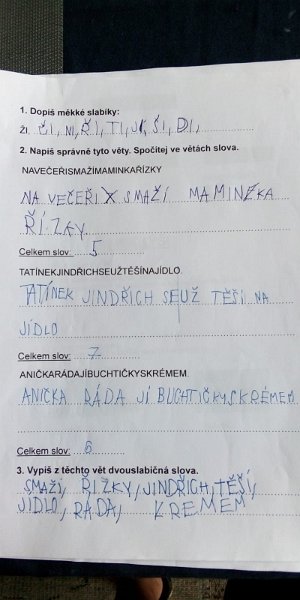 1. Dopiš měkké slabiky:
ŽI, ČI, NI, ŘI, TI, JI, ŠI, DI,
2. Napiš správně tyto věty. Spočítej ve větách slova.
NAVEČEŘISMAŽÍMAMINKAŘÍZKY
NA VEČEŘI X SMAŽÍ MAMINKA
ŘÍZKY
Celkem slov: 5
TATÍNEKJINDŘICHSEUŽTĚŠÍNAJÍDLO.
TATÍNEK JINDŘICH SEUŽ TĚŠÍ NA
JÍDLO
Celkem slov: 7
ANIČKARÁDAJÍBUCHTIČKYSKRÉMEM.
ANIČKA RÁDA JÍ BUCHTIČKYSKRÉMEM
Celkem slov: 6
3. Vypiš z těchto vět dvouslabičná slova.
SMAŽÍ, ŘIZKY, JINDŘICH, TĚŠÍ,
JÍDLO, RÁDA, KREMEM